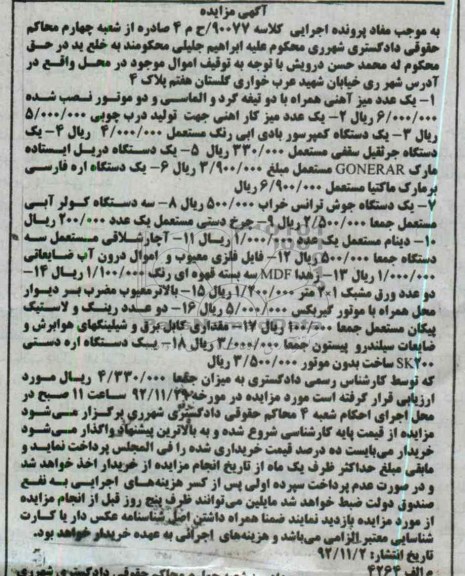 آگهی مزایده
به موجب مفاد پرونده اجرایی کلاسه ۹۰۰۷۷/ح م ۴ صادره از شعبه چهارم محاکم
حقوقی دادگستری شهرری محکوم علیه ابراهیم جلیلی محکومند به خلع ید در حق
محکوم له محمد حسن درویش با توجه به توقیف اموال موجود در محل واقع در
آدرس شهر ری خیابان شهید عرب خواری گلستان هفتم پلاک ۴
۱- یک عدد میز آهنی همراه با دو تیغه گرد و الماسی و دو موتور نصب شده
۶/۰۰۰/۰۰۰ ریال ۲- یک عدد میز کار اهنی جهت تولید درب چوبی ۵/۰۰۰/۰۰۰
ریال ۳- یک دستگاه کمپرسور بادی ابی رنگ مستعمل ۴/۰۰۰/۰۰۰ ریال ۴- یک
دستگاه جرثقیل سقفی مستعمل ۳۳۰/۰۰۰ ریال ۵- یک دستگاه دریل ایستاده
مارک GONERAR مستعمل مبلغ ۳/۹۰۰/۰۰۰ ریال ۶- یک دستگاه اره فارسی
بر مارک ماکتیا مستعمل ۶/۹۰۰/۰۰۰ ریال
۷- یک دستگاه جوش ترانس خراب ۵۰۰/۰۰۰ ریال ۸- سه دستگاه کولر آبی
مستعمل جمعا ۲/۵۰۰/۰۰۰ ریال ۹- چرخ دستی مستعمل یک عدد ۲۰۰/۰۰۰ ریال
۱۰- دینام مستعمل یک عدد ۱/۰۰۰/۰۰۰ ریال ۱۱- آچارشلاقی مستعمل سه
دستگاه جمعا ۵۰۰/۰۰۰ ریال ۱۲- فایل فلزی معیوب و اموال درون آب ضایعاتی
۱/۰۰۰/۰۰۰ ریال ۱۳- زهدا MDF سه بسته قهوه ای رنگ ۱/۱۰۰/۰۰۰ ریال ۱۴-
دو عدد ورق مشبک ۱×۲ متر ۱/۲۰۰/۰۰۰ ریال ۱۵- بالاتر معیوب مضرب بر دیوار
محل همراه با موتور گیربکس ۵/۰۰۰/۰۰۰ ریال ۱۶- دو عدد رینگ و لاستیک
پیکان مستعمل جمعا ۱۰۰/۰۰۰ ریال ۱۷- مقداری کابل برق و شیلینگهای هوابرش و
ضایعات سیلندرو پیستون جمعا ۳/۰۰۰/۰۰۰ ریال ۱۸- یک دستگاه اره دستی
SK۲۰۰ ساخت بدون موتور ۳/۵۰۰/۰۰۰ ریال
که توسط کارشناس رسمی دادگستری به میزان جمعا ۴/۳۳۰/۰۰۰ ریال مورد
ارزیابی قرار گرفته است مورد مزایده در مورخه ۹۲/۱۱/۲۹ ساعت ۱۱ صبح در
محل اجرای احکام شعبه ۴ محاکم حقوقی دادگستری شهرری برگزار می‌شود
مزایده از قیمت پایه کارشناسی شروع شده و به بالاترین پیشنهاد واگذار می‌شود
خریدار می‌بایست ده درصد قیمت خریداری شده را فی المجلس پرداخت نماید و
مابقی مبلغ حداکثر ظرف یک ماه از تاریخ انجام مزایده از خریدار اخذ خواهد شد
و در صورت عدم پرداخت سپرده اولی پس از کسر هزینه‌های اجرایی به نفع
صندوق دولت ضبط خواهد شد مایلین می‌توانند ظرف پنج روز قبل از انجام مزایده
از مورد مزایده بازدید نمایند ضمنا همراه داشتن اصل شناسنامه عکس دار یا کارت
شناسایی معتبر الزامی می‌باشد و هزینه‌های اجرائی به عهده خریدار خواهد بود.
تاریخ انتشار: ۹۲/۱۱/۲
م الف ۴۲۶۴